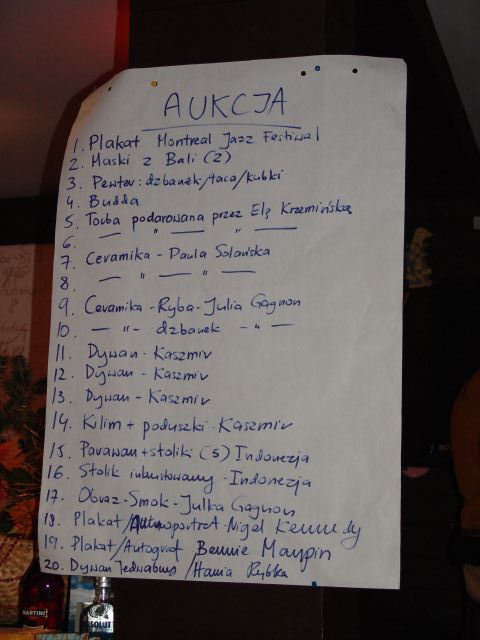 AUKCJA
1. Plakat Montreal Jazz Festiwal
2. Maski z Bali (2)
3. Pewter: dzbanek/taca/kubki
4. Budda
5. Torba podarowana przez Elę Krzemińską
6. — " — " —
7. Ceramika - Paula Solańska
8. — " — " —
9. Ceramika - Ryba - Julia Gagnon
10. — " — dzbanek — " —
11. Dywan - Kaszmir
12. Dywan - Kaszmir
13. Dywan - Kaszmir
14. Kilim + poduszki - Kaszmir
15. Parawan + stoliki (5) Indonezja
16. Stolik inkrustowany - Indonezja
17. Obraz - Smok - Julka Gagnon
18. Plakat/Autoportret Nigel Kennedy
19. Plakat/Autograf Bennie Maupin
20. Dywan Jedwabny / Hania Rybka
MARTINI
ABSOLUT